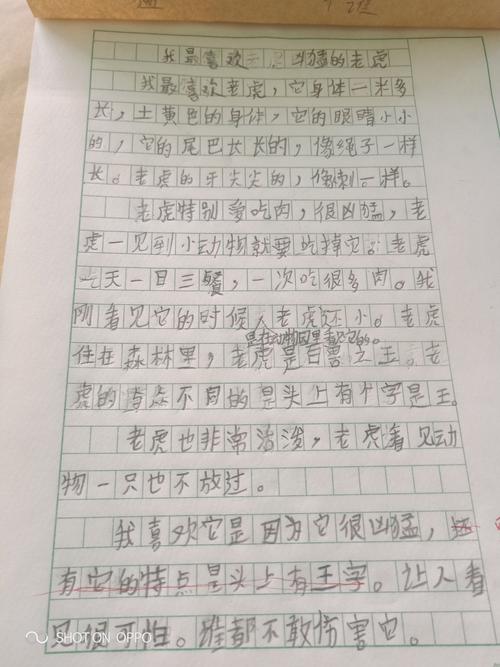 我最喜欢凶猛的老虎
我最喜欢老虎，它身体一米多
长，土黄色的身体，它的眼睛小小
的，它的尾巴长长的，像绳子一样
长。老虎的牙尖尖的，像刺一样。
老虎特别爱吃肉，很凶猛，老
虎一见到小动物就要吃掉它。老虎
吃天一日三餐，一次吃很多肉。我
刚看见它的时候老虎还小。老虎
是在动物园里看见它的。
住在森林里，老虎是百兽之王，老
虎的与众不同的是头上有个字是王。
老虎也非常活泼，老虎看见动
物一只也不放过。
我喜欢它是因为它很凶猛，还
有它的特点是头上有王字。让人看
见很可怕。谁都不敢伤害它。
SHOT ON OPPO